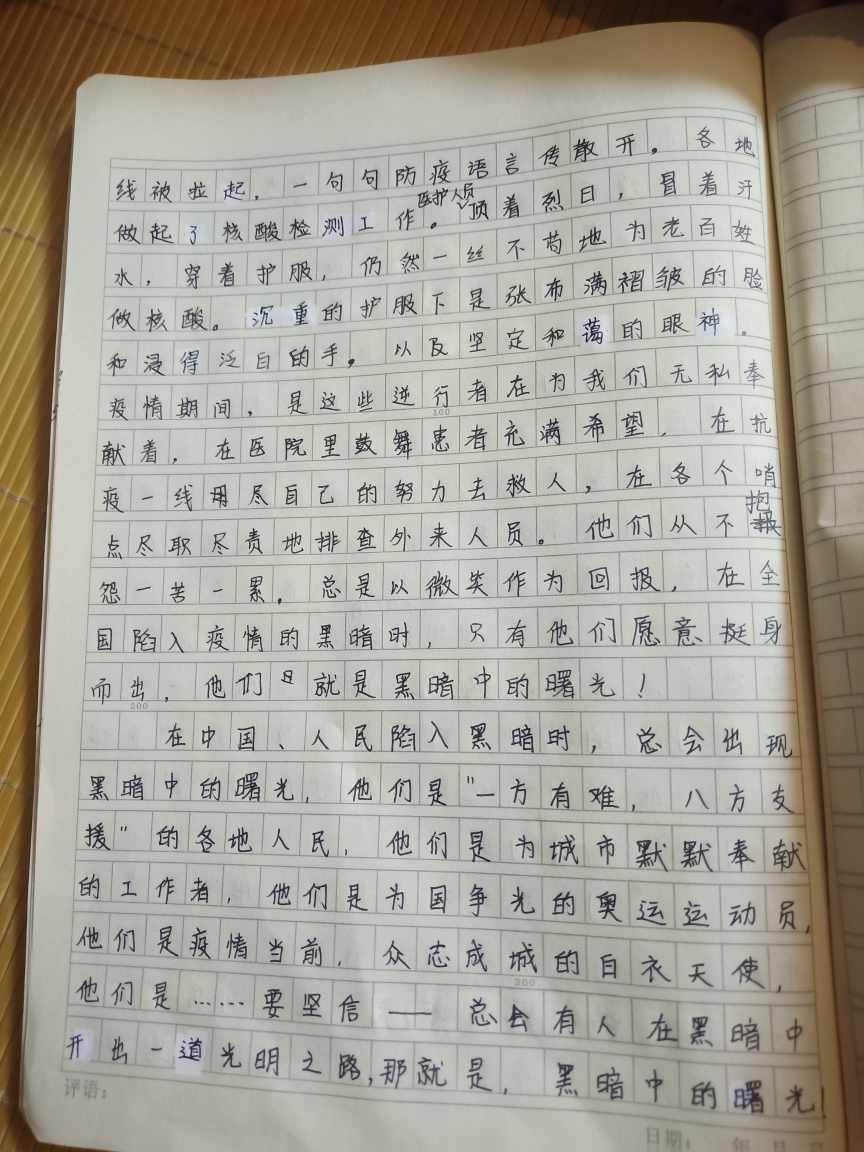 线被拉起，一句句防疫语言传散开。各地
做起了核酸检测工作。医护人员顶着烈日，冒着汗
水，穿着护服，仍然一丝不苟地为老百姓
做核酸。沉重的护服下是张布满褶皱的脸
和浸得泛白的手。以及坚定和蔼的眼神。
疫情期间，是这些逆行者在为我们无私奉
献着，在医院里鼓舞患者充满希望，在抗
疫一线用尽自己的努力去救人，在各个哨
点尽职尽责地排查外来人员。他们从不抱
怨一苦一累。总是以微笑作为回报，在全
国陷入疫情的黑暗时，只有他们愿意挺身
而出，他们就是黑暗中的曙光！
在中国、人民陷入黑暗时，总会出现
黑暗中的曙光，他们是"一方有难，八方支
援"的各地人民，他们是为城市默默奉献
的工作者，他们是为国争光的奥运运动员，
他们是疫情当前，众志成城的白衣天使，
他们是……要坚信——总会有人在黑暗中
开出一道光明之路，那就是，黑暗中的曙光！
100
200
300
评语：
日期： 年 月 日